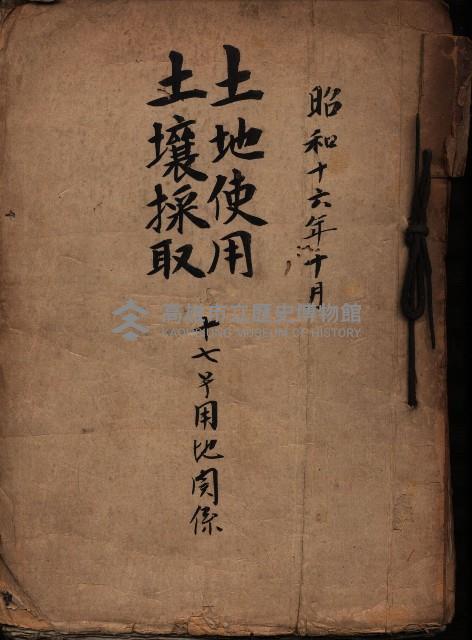 昭和十六年十月
土地使用
土壤採取
十七号用地関係
高雄市立歷史博物館
KAOHSIUNG MUSEUM OF HISTORY